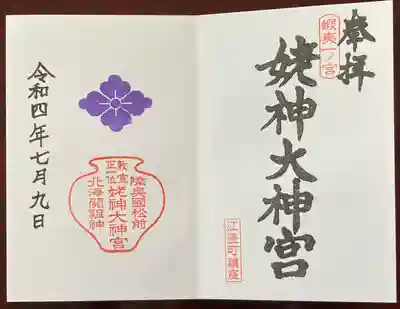 奉拝
蝦夷一ノ宮
姥神大神宮
江差町鎮座
陸奥國松前
勅宣正一位姥神大神宮
北海開祖神
令和四年七月九日